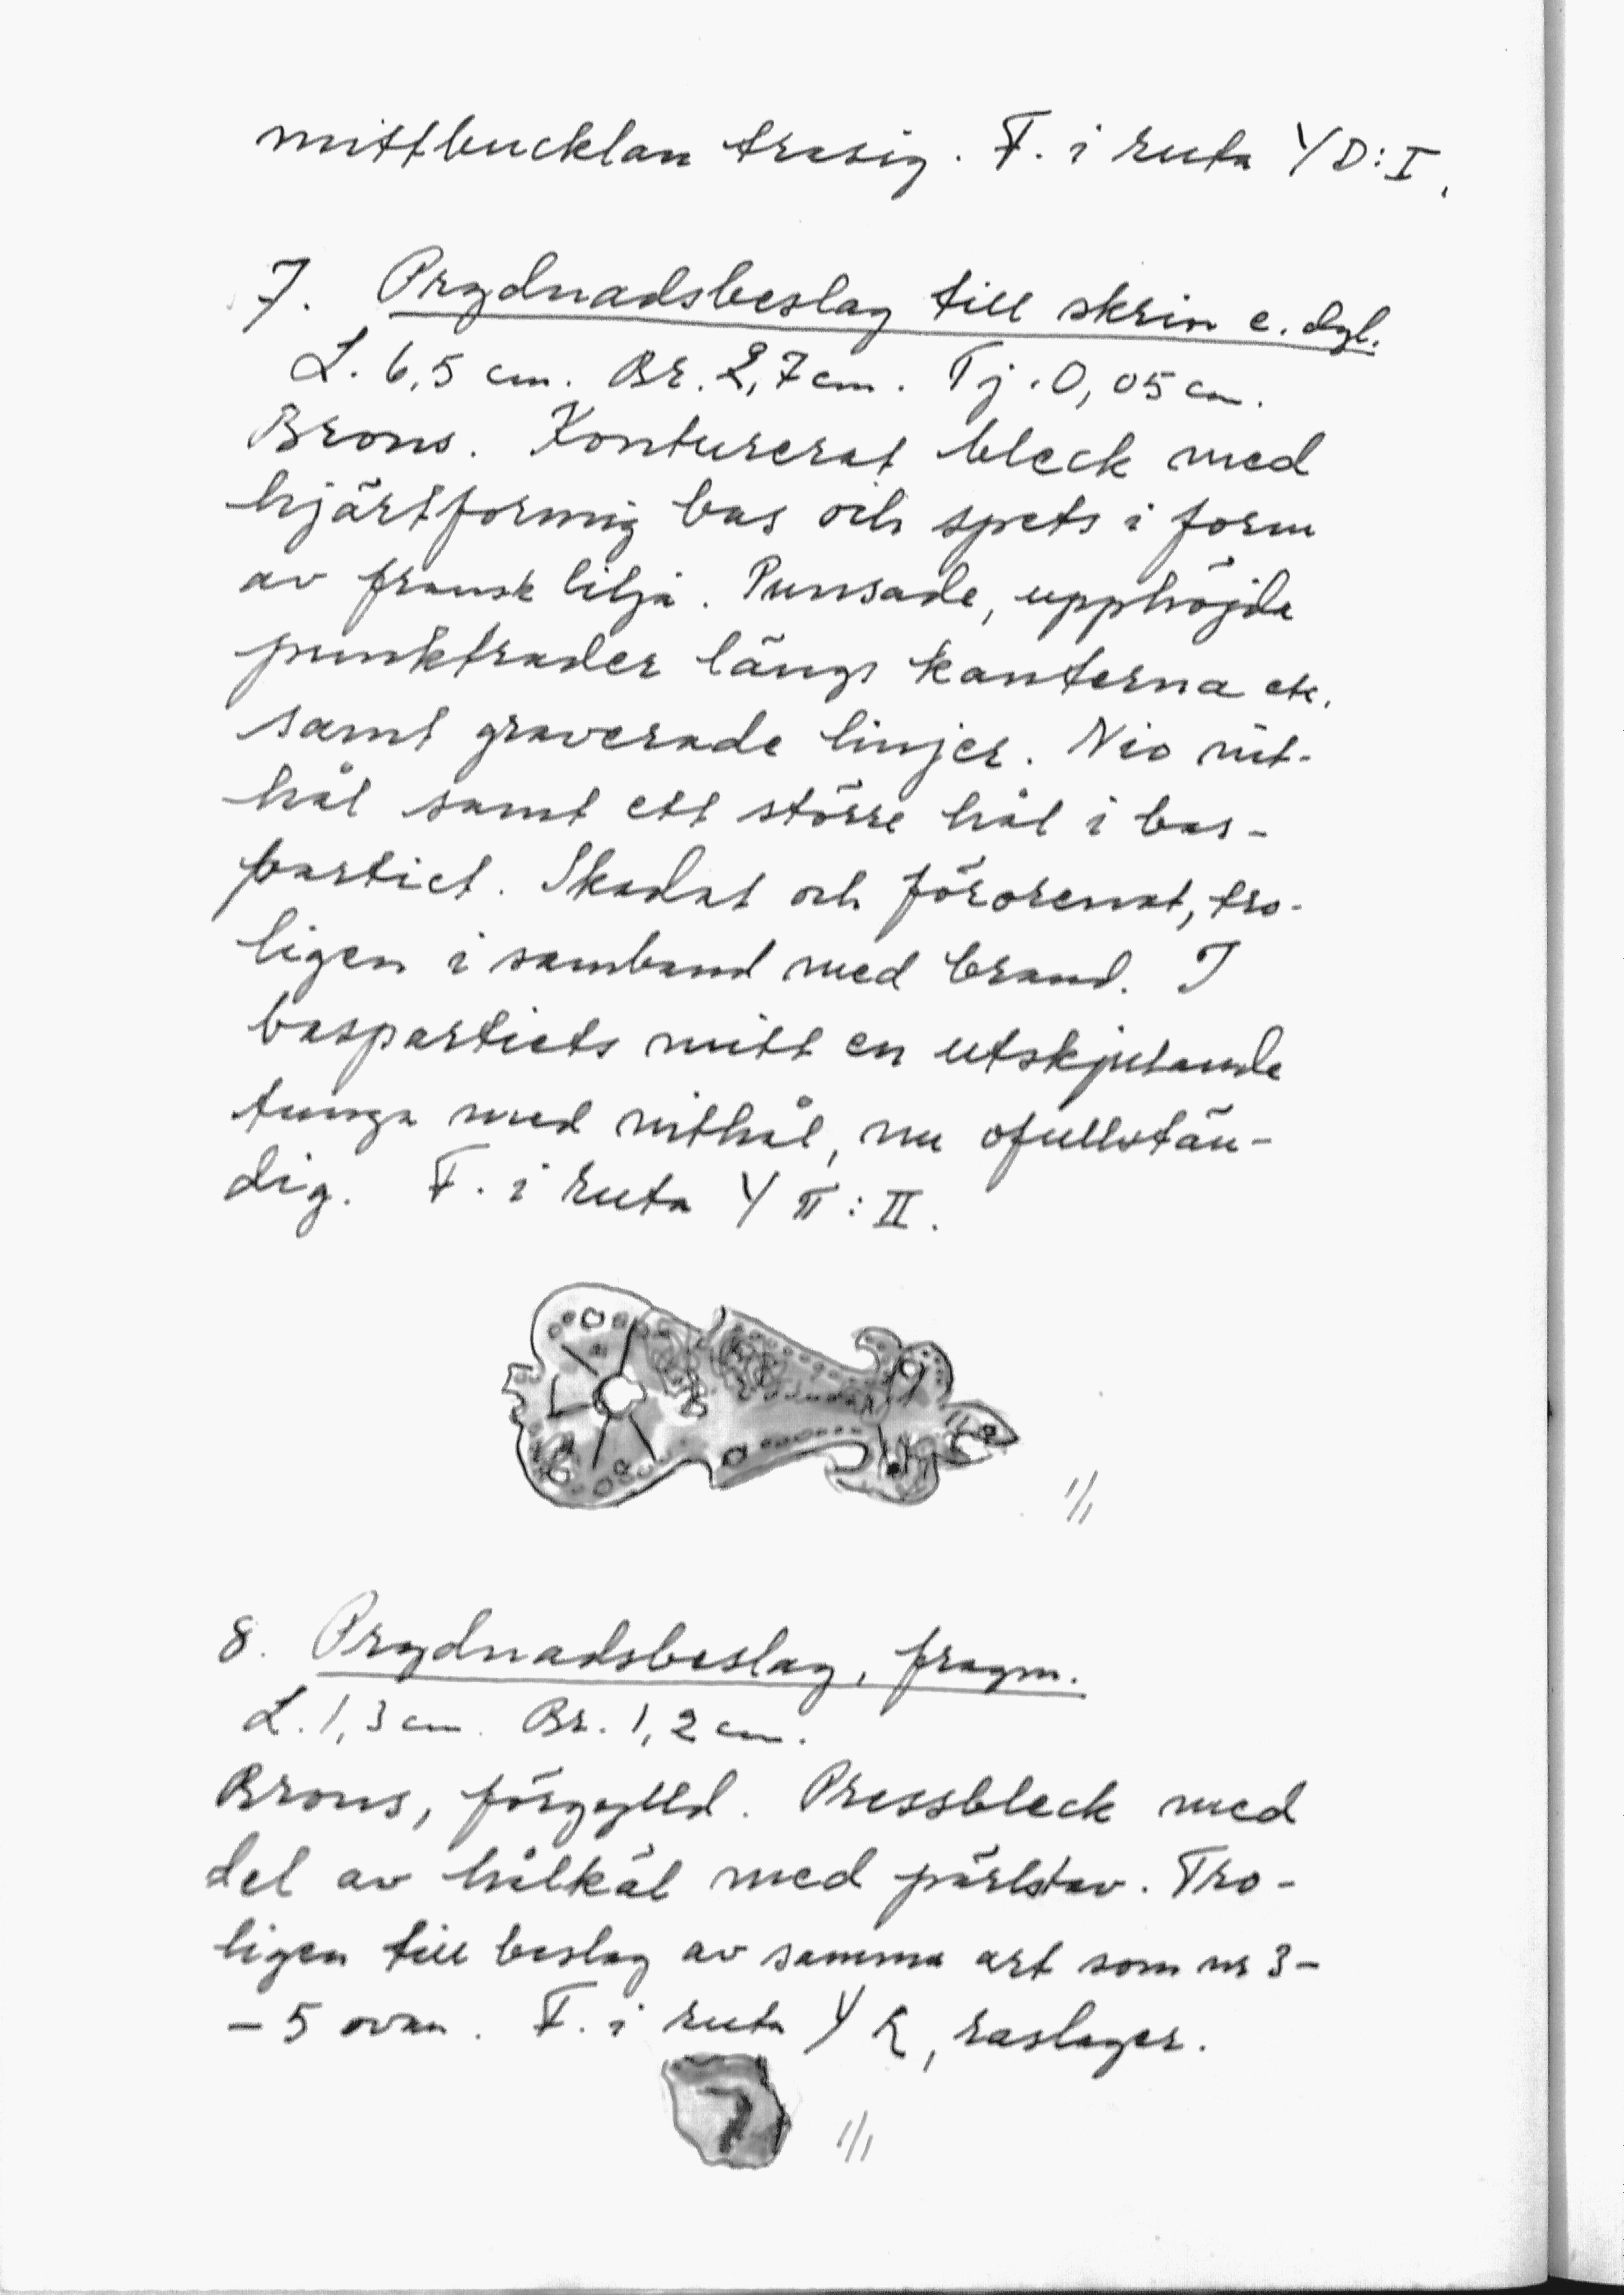 mittbucklan trasig. F. i ruta YD:I.
7. Prydnadsbeslag till skrin e. dyl.
L. 6,5 cm. Br. 2,7 cm. Tj. 0,05 cm.
Brons. Konturerat bleck med
hjärtformig bas och spets i form
av fransk lilja. Punsade, upphöjda
punktrader längs kanterna etc.
samt graverade linjer. Nio nit-
hål samt ett större hål i bas-
partiet. Skadat och förorenat, tro-
ligen i samband med brand. I
baspartiets mitt en utskjutande
tunga med nithål, nu ofullstän-
dig. F. i ruta Y π:II.
1/1
8. Prydnadsbeslag, fragm.
L. 1,3 cm. Br. 1,2 cm.
Brons, förgylld. Pressbleck med
del av hålkäl med pärlstav. Tro-
ligen till beslag av samma art som nr 3-
-5 ovan. F. i ruta Y, raslager.
1/1